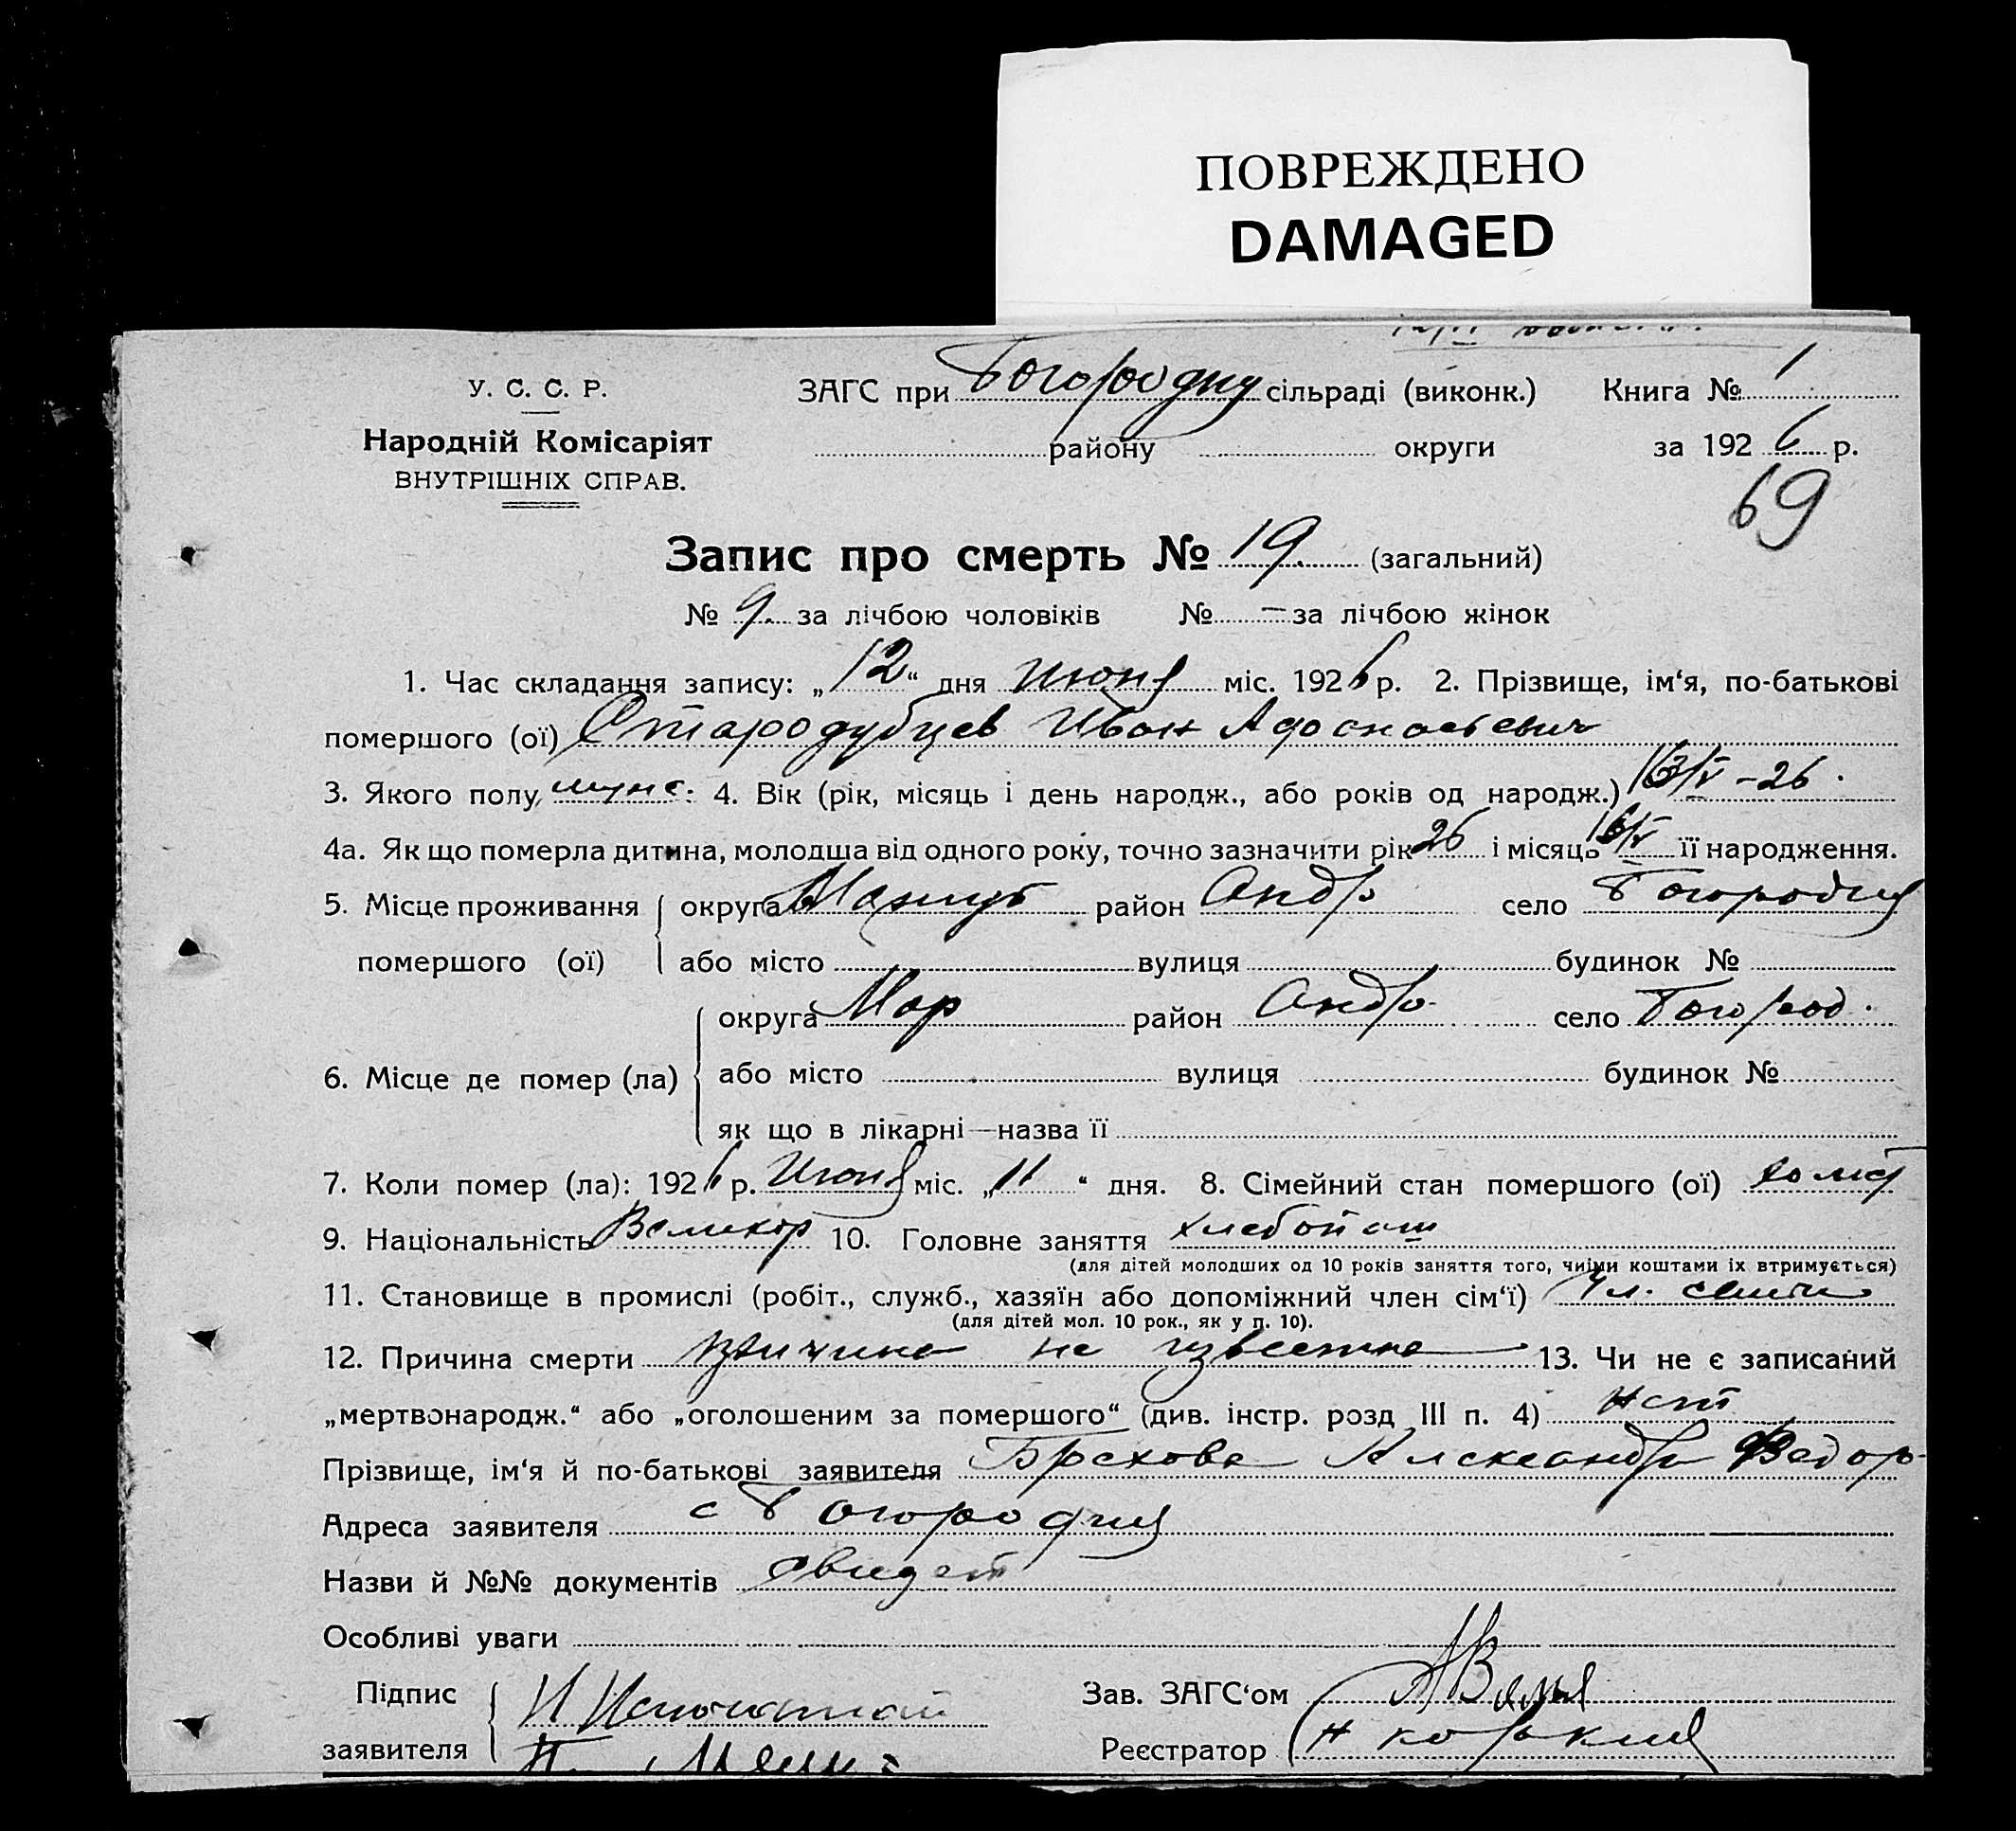 ПОВРЕЖДЕНО
DAMAGED
У. С. С. Р.
Народній Комісаріят
ВНУТРІШНІХ СПРАВ.
ЗАГС при Богородиц сільраді (виконк.) Книга № 1
району округи за 1926 р.
69
Запис про смерть № 19. (загальний)
№ 9. за лічбою чоловіків № — за лічбою жінок
1. Час складання запису: „12“ дня Июня міс. 1926 р. 2. Прізвище, ім‘я, по-батькові
помершого (ої) Стародубцев Иван Афонасьевич
3. Якого полу муж. 4. Вік (рік, місяць і день народж., або років од народж.) 13/V – 26.
4а. Як що померла дитина, молодша від одного року, точно зазначити рік 26 і місяць її народження.
5. Місце проживання округа район Андр село Богородиц
помершого (ої) або місто вулиця будинок №
6. Місце де помер (ла) округа Мар район Андр. село Богород.
або місто вулиця будинок №
як що в лікарні—назва її
7. Коли помер (ла): 1926 р. Июня міс. „11“ дня. 8. Сімейний стан помершого (ої) холост
9. Національність Великор 10. Головне заняття хлебопаш
(для дітей молодших од 10 років заняття того, чиїми коштами їх втримується)
11. Становище в промислі (робіт., служб., хазяїн або допоміжний член сім‘ї) Чл. семьи
(для дітей мол. 10 рок., як у п. 10).
12. Причина смерти причина не известна 13. Чи не є записаний
„мертвонародж.“ або „оголошеним за помершого“ (див. інстр. розд III п. 4) нет
Прізвище, ім‘я й по-батькові заявителя Брехова Александра Федор
Адреса заявителя с Богородиц
Назви й №№ документів свидет
Особливі уваги
Підпис
заявителя
Зав. ЗАГС‘ом
Реєстратор